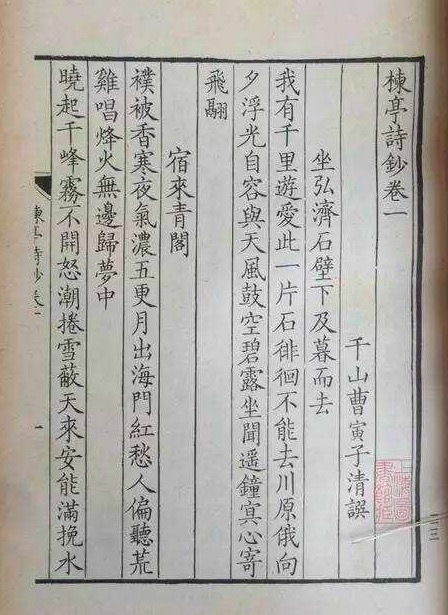 楝亭詩鈔卷一
千山曹寅子清譔
坐弘濟石壁下及暮而去
我有千里遊愛此一片石徘徊不能去川原俄向
夕浮光自容與天風鼓空碧露坐聞遥鐘冥心寄
飛翮
宿來青閣
襆被香寒夜氣濃五更月出海門紅愁人偏聽荒
雞唱烽火無邊歸夢中
曉起千峰霧不開怒潮捲雪蔽天來安能滿挽水
楝亭詩鈔卷一
一
二三